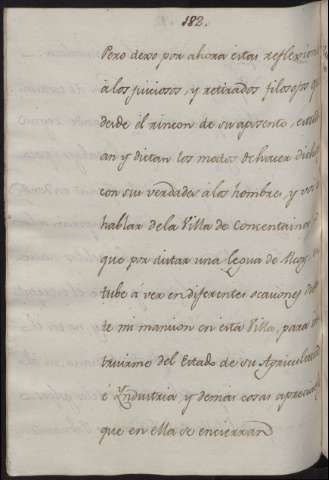 182.
Pero dexo por ahora estas reflexion
à los juiciosos, y retirados filosofos q
desde el rincon de su aposento, estudi
an y dictan los modos de hacer dicho
con sus verdades à los hombres, y voi
hablar dela Villa de Concentaina
que por distar una legua de Alcoy,
tube à ver en diferentes ocaciones
te mi mancion en esta Villa, para ins
truirme del Estado de su Agricultura
é Yndustria y demàs cosas apreciabl
que en ella se encierran